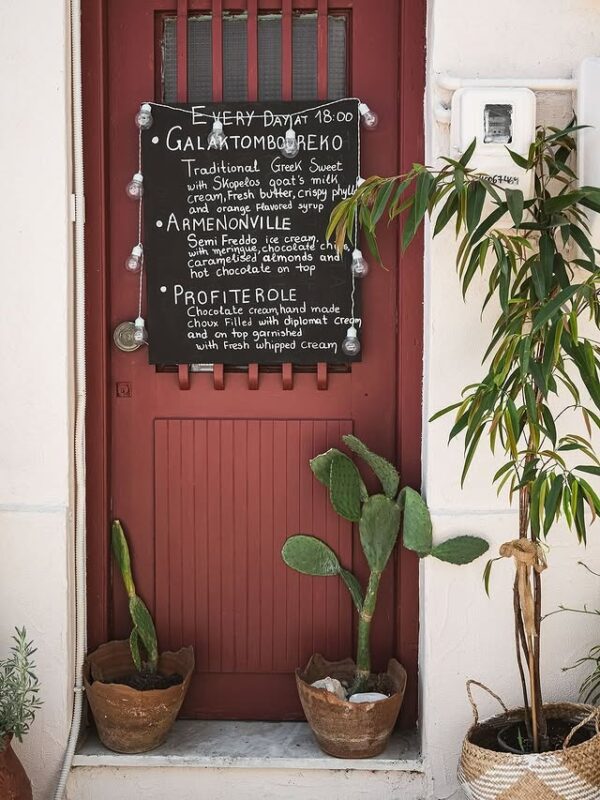 EVERY DAY AT 18:00
• GALAKTOMBOUREKO
Traditional Greek Sweet
with Skopelos goat's milk
cream, Fresh butter, crispy phyllo
and orange flavored syrup
• ARMENONVILLE
Semi Freddo ice cream
with meringue, chocolate chips,
caramelised almonds and
hot chocolate on top
• PROFITEROLE
Chocolate cream, hand made
choux filled with diplomat cream
and on top garnished
with Fresh whipped cream